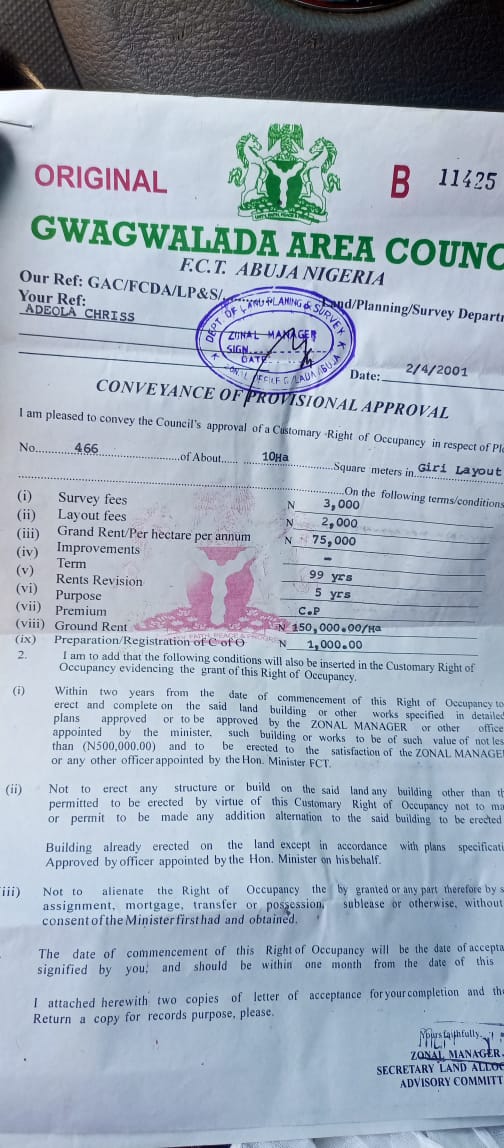 ORIGINAL
B 11425
GWAGWALADA AREA COUNC
F.C.T. ABUJA NIGERIA
Our Ref: GAC/FCDA/LP&S/
Land/Planning/Survey Departm
Your Ref:
ADEOLA CHRISS
DEPT OF LAND PLANING & SURVEY
ZONAL MANAGER
SIGN
DATE
Date: 2/4/2001
CONVEYANCE OF PROVISIONAL APPROVAL
I am pleased to convey the Council's approval of a Customary -Right of Occupancy in respect of Plo
No. 466 of About 10Ha Square meters in Giri Layout
On the following terms/conditions
(i) Survey fees N 3,000
(ii) Layout fees N 2,000
(iii) Grand Rent/Per hectare per annum N 75,000
(iv) Improvements –
(v) Term 99 yrs
(vi) Rents Revision 5 yrs
(vii) Purpose C.P
(viii) Premium N 150,000.00/Ha
(ix) Ground Rent N 1,000.00
Preparation/Registration of C of O
2. I am to add that the following conditions will also be inserted in the Customary Right of
Occupancy evidencing the grant of this Right of Occupancy.
(i) Within two years from the date of commencement of this Right of Occupancy to
erect and complete on the said land building or other works specified in detailed
plans approved or to be approved by the ZONAL MANAGER or other office
appointed by the minister, such building or works to be of such value of not les
than (N500,000.00) and to be erected to the satisfaction of the ZONAL MANAGE
or any other officer appointed by the Hon. Minister FCT.
(ii) Not to erect any structure or build on the said land any building other than th
permitted to be erected by virtue of this Customary Right of Occupancy not to ma
or permit to be made any addition alternation to the said building to be erected
Building already erected on the land except in accordance with plans specificati
Approved by officer appointed by the Hon. Minister on his behalf.
iii) Not to alienate the Right of Occupancy the by granted or any part therefore by s
assignment, mortgage, transfer or possession, sublease or otherwise, without
consent of the Minister first had and obtained.
The date of commencement of this Right of Occupancy will be the date of accepta
signified by you; and should be within one month from the date of this
I attached herewith two copies of letter of acceptance for your completion and the
Return a copy for records purpose, please.
Yours faithfully,
ZONAL MANAGER
SECRETARY LAND ALLOC
ADVISORY COMMITT